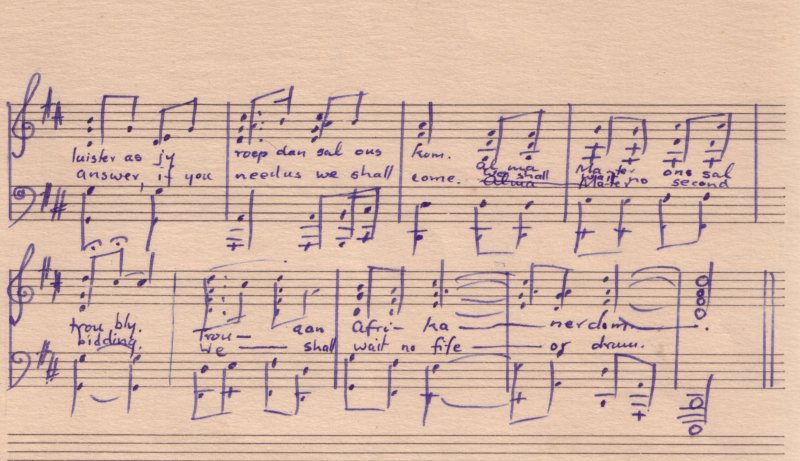 luister as jy roep dan sal ons kom. Al ma Mater ons sal
answer, if you need us we shall come. no second
trou bly. Trou — aan Afri- ka — nerdom — .
bidding. We — shall wait no fife — or drum.